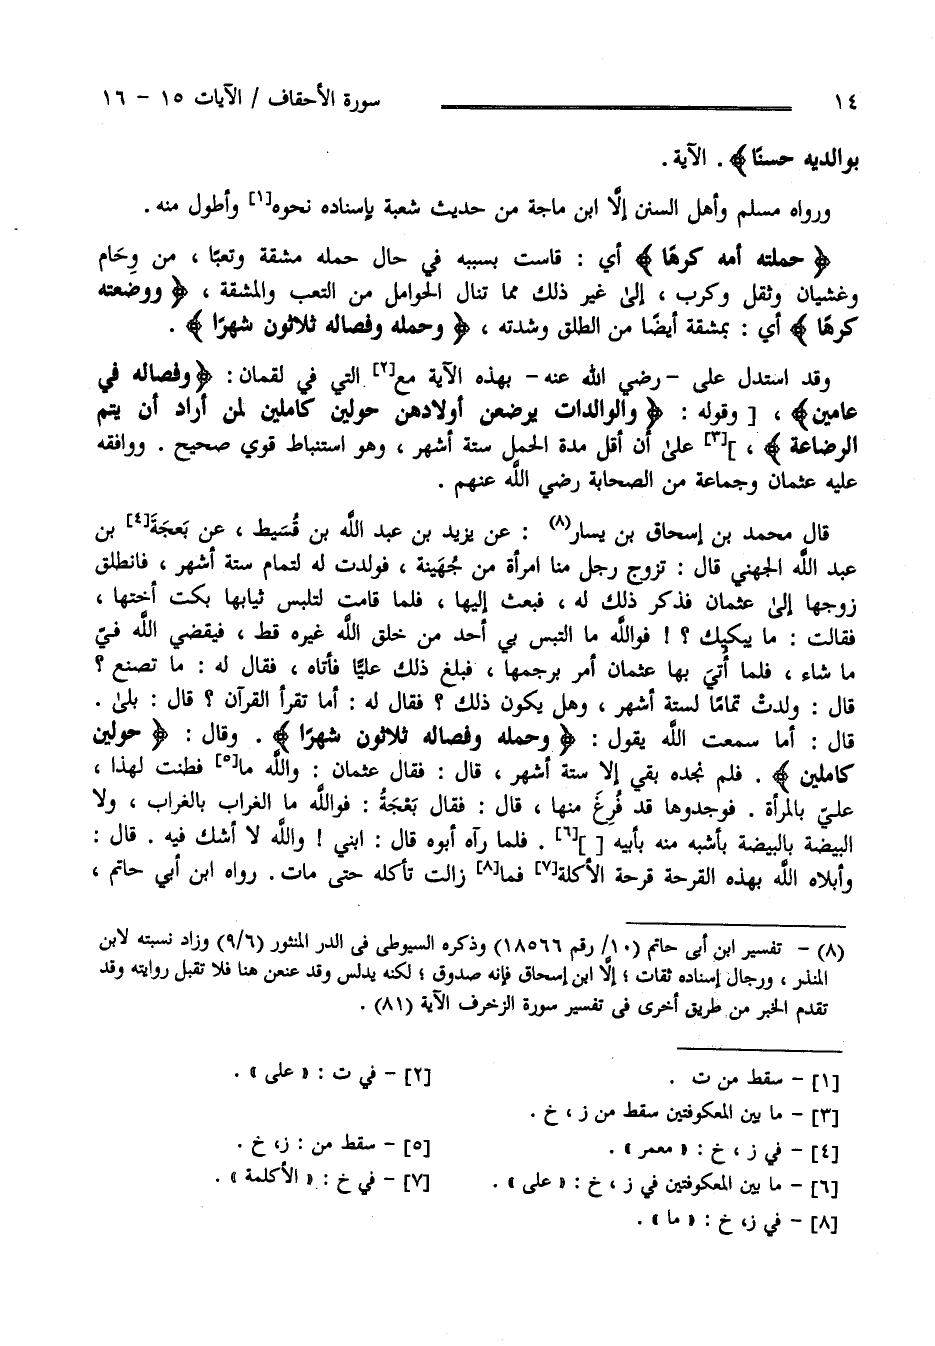 ١٤ سورة الأحقاف / الآيات ١٥ - ١٦
بوالديه حسنًا ﴾ . الآية .
ورواه مسلم وأهل السنن إلَّا ابن ماجة من حديث شعبة بإسناده نحوه[١] وأطول منه .
﴿ حملته أمه كرهًا ﴾ أي : قاست بسببه في حال حمله مشقة وتعبًا ، من وِحَام
وغشيان وثقل وكرب ، إلىٰ غير ذلك مما تنال الحوامل من التعب والمشقة ، ﴿ ووضعته
كرهًا ﴾ أي : بمشقة أيضًا من الطلق وشدته ، ﴿ وحمله وفصاله ثلاثون شهرًا ﴾ .
وقد استدل على -رضي الله عنه- بهذه الآية مع[٢] التي في لقمان : ﴿ وفصاله في
عامين ﴾ ، [ وقوله : ﴿ والوالدات يرضعن أولادهن حولين كاملين لمن أراد أن يتم
الرضاعة ﴾ ، ][٣] علىٰ أن أقل مدة الحمل ستة أشهر ، وهو استنباط قوي صحيح . ووافقه
عليه عثمان وجماعة من الصحابة رضي اللَّه عنهم .
قال محمد بن إسحاق بن يسار(٨) : عن يزيد بن عبد اللَّه بن قُسَيط ، عن بَعجَةَ[٤] بن
عبد اللَّه الجهني قال : تزوج رجل منا امرأة من جُهَينة ، فولدت له لتمام ستة أشهر ، فانطلق
زوجها إلىٰ عثمان فذكر ذلك له ، فبعث إليها ، فلما قامت لتلبس ثيابها بكت أختها ،
فقالت : ما يبكيك ؟ ! فواللَّه ما التبس بي أحد من خلق اللَّه غيره قط ، فيقضي اللَّه فيّ
ما شاء ، فلما أُتيَ بها عثمان أمر برجمها ، فبلغ ذلك عليًّا فأتاه ، فقال له : ما تصنع ؟
قال : ولدتْ تمامًا لستة أشهر ، وهل يكون ذلك ؟ فقال له : أما تقرأ القرآن ؟ قال : بلىٰ .
قال : أما سمعت اللَّه يقول : ﴿ وحمله وفصاله ثلاثون شهرًا ﴾ . وقال : ﴿ حولين
كاملين ﴾ . فلم نجده بقي إلا ستة أشهر ، قال : فقال عثمان : واللَّه ما[٥] فطنت لهذا ،
عليّ بالمرأة . فوجدوها قد فُرِغَ منها ، قال : فقال بَعْجَةُ : فواللَّه ما الغراب بالغراب ، ولا
البيضة بالبيضة بأشبه منه بأبيه [ ][٦] . فلما رآه أبوه قال : ابني ! واللَّه لا أشك فيه . قال :
وأبلاه اللَّه بهذه القرحة قرحة الأكلة[٧] فما[٨] زالت تأكله حتى مات . رواه ابن أبي حاتم ،
(٨) - تفسير ابن أبى حاتم (١٠/ رقم ١٨٥٦٦) وذكره السيوطى فى الدر المنثور (٩/٦) وزاد نسبته لابن
المنذر ، ورجال إسناده ثقات ؛ إلَّا ابن إسحاق فإنه صدوق ؛ لكنه يدلس وقد عنعن هنا فلا تقبل روايته وقد
تقدم الخبر من طريق أخرى فى تفسير سورة الزخرف الآية (٨١) .
[١] - سقط من ت . [٢] - في ت : « على » .
[٣] - ما بين المعكوفتين سقط من ز ، خ .
[٤] - في ز ، خ : « معمر » . [٥] - سقط من : ز، خ .
[٦] - ما بين المعكوفتين في ز ، خ : « على » . [٧] - في خ : « الأكلمة » .
[٨] - في ز، خ : « ما » .